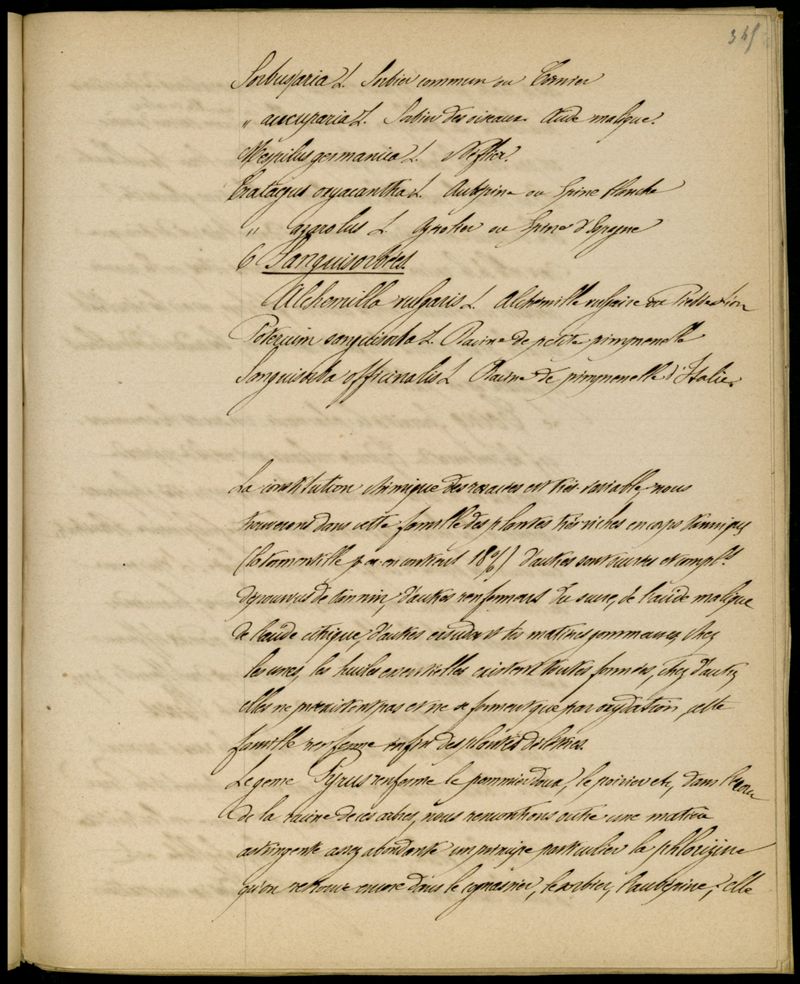 Sorbus aria L. Sorbier commun ou Cormier
" aucuparia L. Sorbier des oiseaux. Acide malique.
Mespilus germanica L. Néflier.
Crataegus oxyacantha L. Aubépine ou Epine blanche
" azarolus L. Azerolier ou Epine d'Espagne
6 Sanguisorbées.
Alchemilla vulgaris L. Alchémille vulgaire ou Pied de Lion
Poterium sanguisorba L. Racine de petite pimprenelle
Sanguisorba officinalis L. Racine de pimprenelle d'Italie.
La constitution chimique des rosacées est très variable, nous
trouverons dans cette famille des plantes très riches en corps tanniques
(la tormentille p. ex. en contient 18%) d'autres sont au complt.
dépourvues de tannin, d'autres renferment du sucre, de l'acide malique
de l'acide citrique, d'autres exsudent des matières gommeuses, chez
les unes, les huiles essentielles existent toutes formées, chez d'autres
elles ne préexistent pas et ne se forment que par oxydation, cette
famille renferme enfin des plantes
Le genre Pyrus renferme le pommier doux, le poirier etc, dans l'écorce
de la racine de ces arbres, nous rencontrons outre une matière
astringente assez abondante un principe particulier la phlorizine
qu'on retrouve encore dans le cognassier, le sorbier, l'aubépine, elle